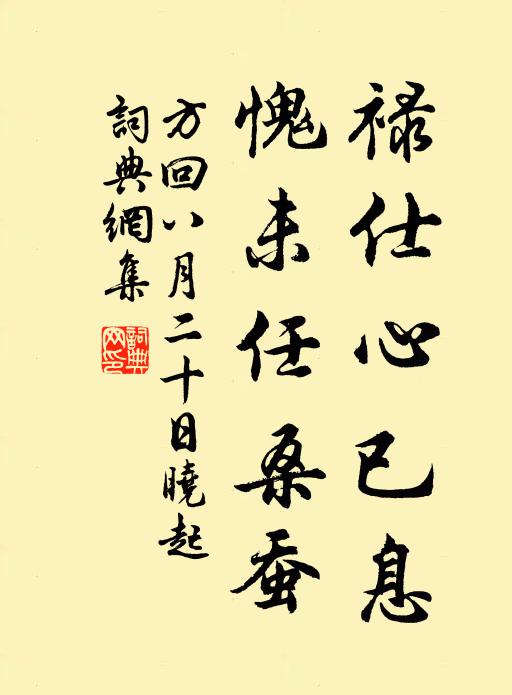 禄仕心已息
愧未任桑蚕
方回八月二十日曉起
詞典網集
詞典
网印